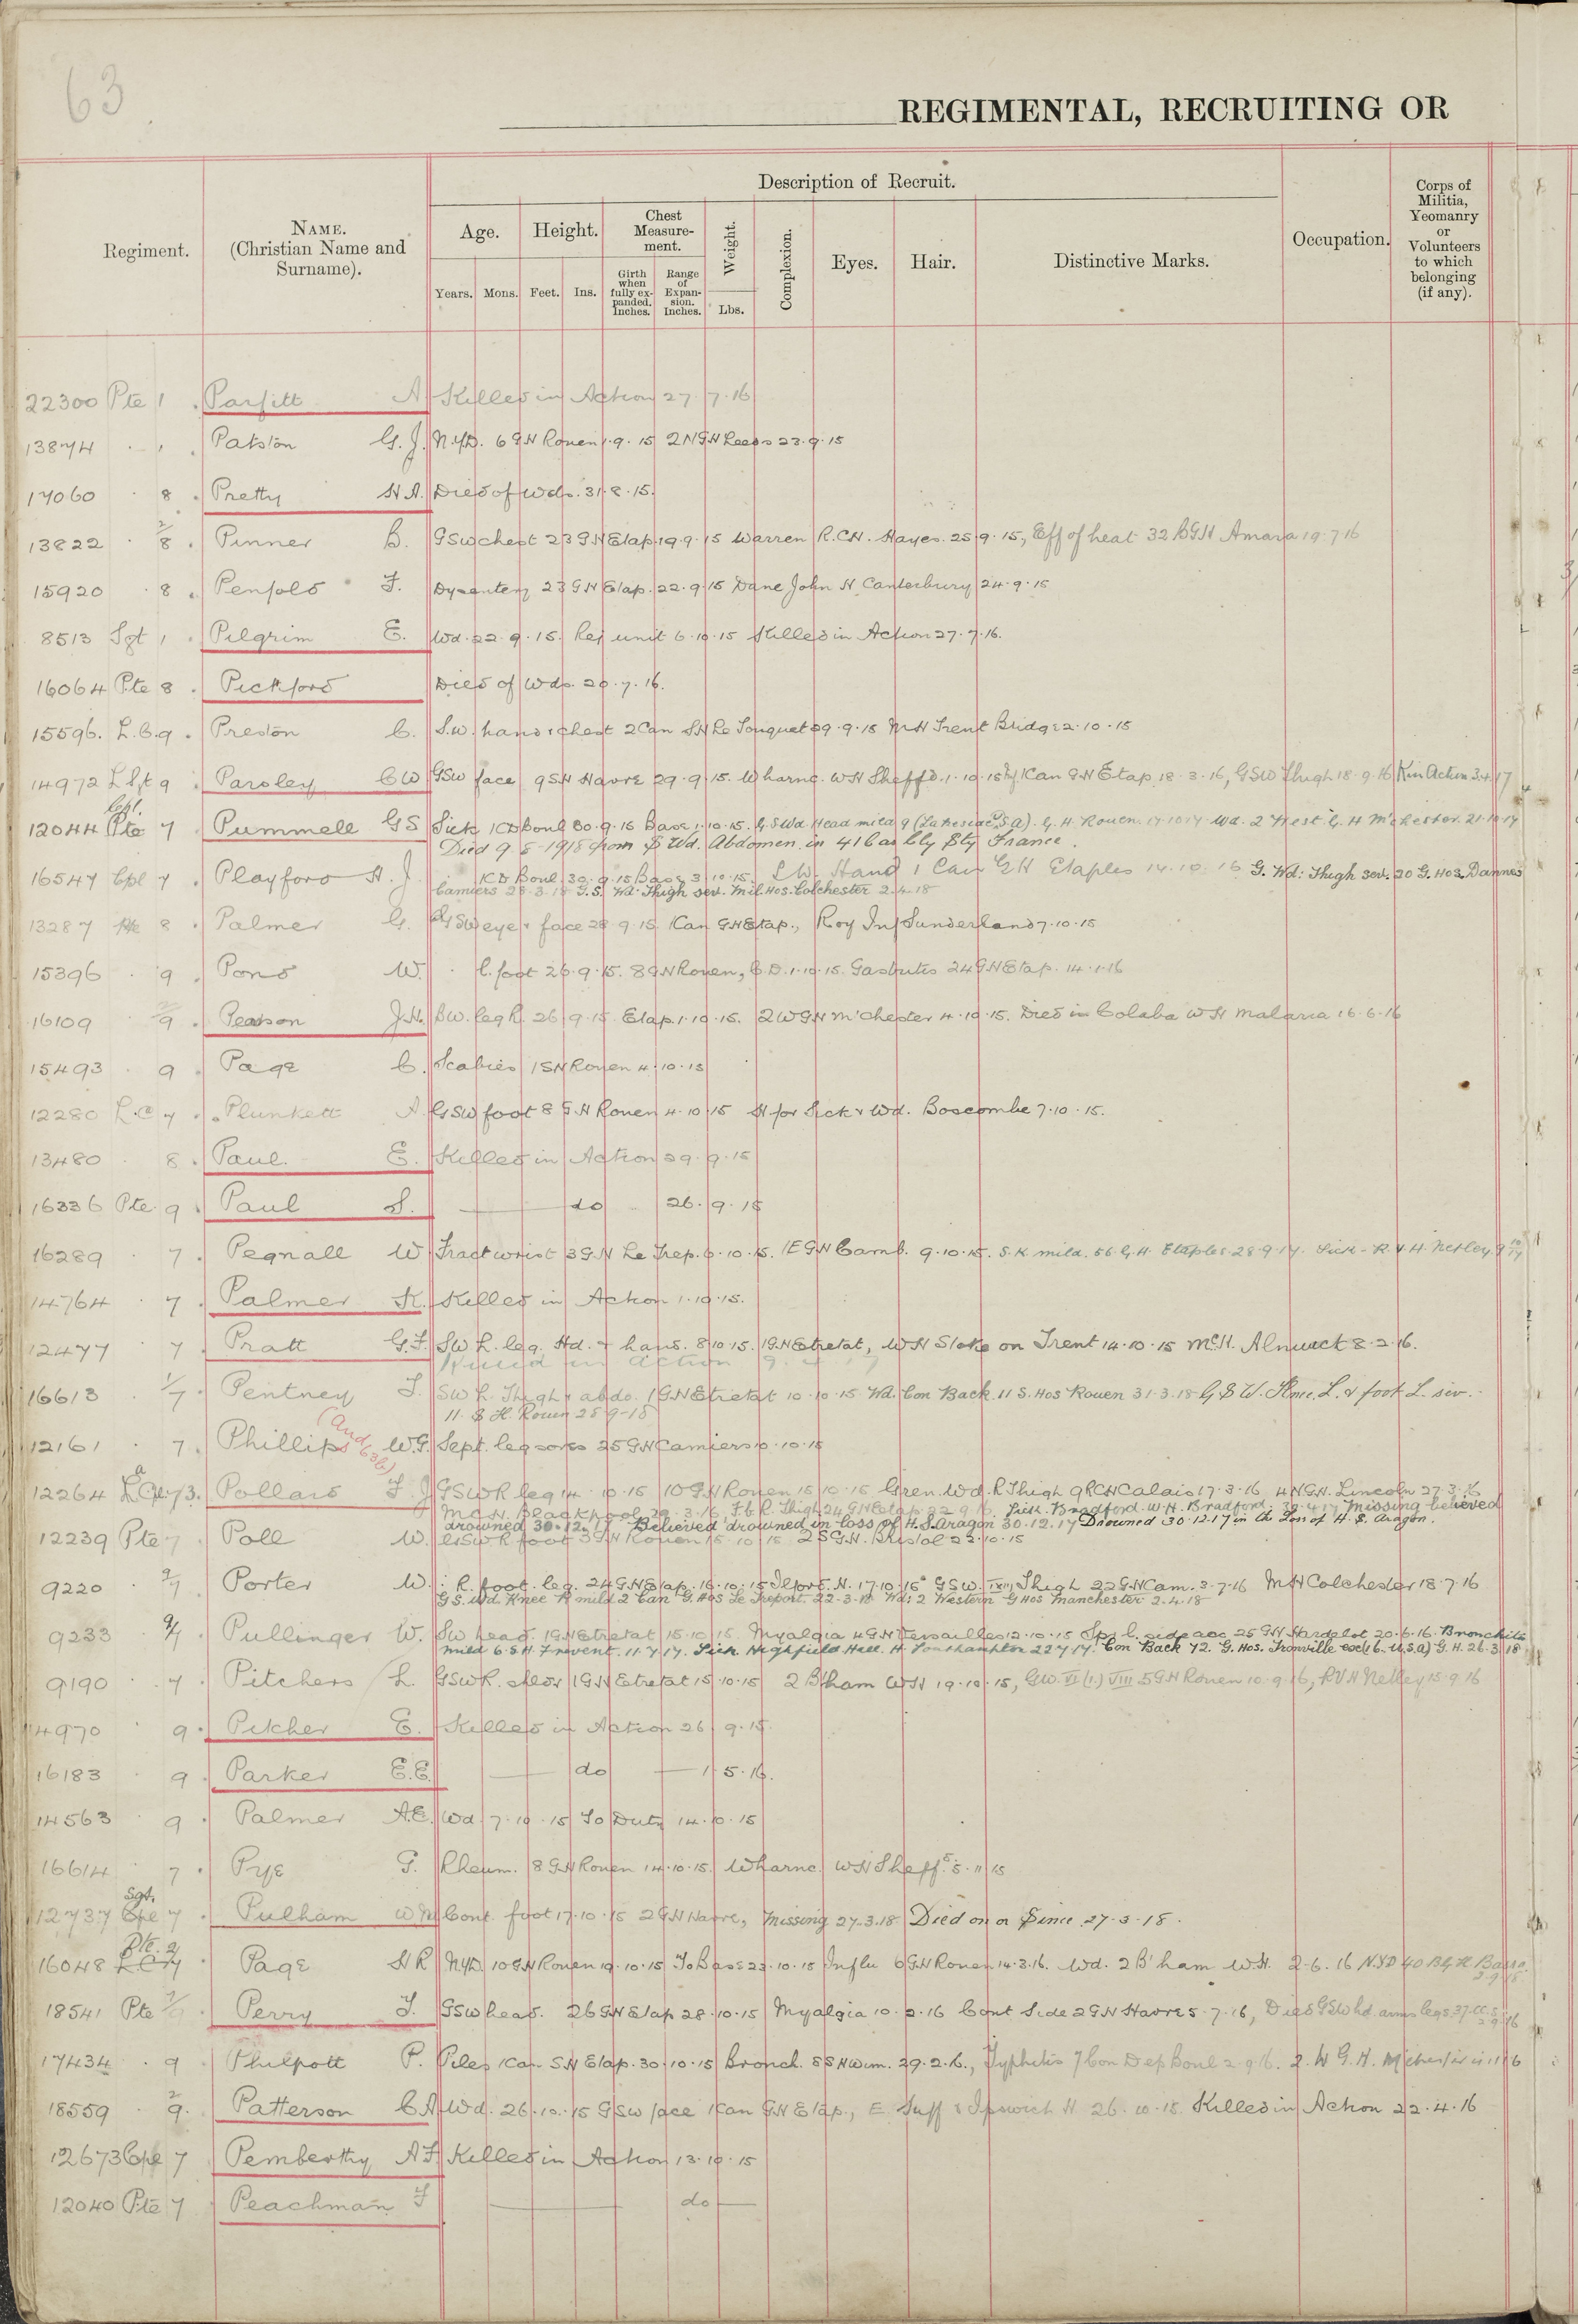 63
REGIMENTAL, RECRUITING OR
Regiment.
NAME.
(Christian Name and
Surname).
Description of Recruit.
Age.
Height.
Chest
Measure-
ment.
Weight.
Complexion.
Eyes.
Hair.
Distinctive Marks.
Occupation.
Corps of
Militia,
Yeomanry
or
Volunteers
to which
belonging
(if any).
Years.
Mons.
Feet.
Ins.
Girth
when
fully ex-
panded.
Inches.
Range
of
Expan-
sion.
Inches.
Lbs.
22300 Pte 1 Parfitt A Killed in Action 27.7.16
13874 . 1 Patston G.J. N.Y.D. 6 GH Rouen 1.9.15 2NGH Leeds 23.9.15
17060 . 8 Pretty H A. Died of Wds. 31.8.15.
13822 . 2/8 Pinner B. GSW chest 23 GH Etap. 19.9.15 Warren R.C.H. Hayes. 25.9.15, Eff of heat 32 BGH Amara 19.7.16
15920 . 8 Penfold F. Dysentery 23 GH Etap. 22.9.15 Dane John H Canterbury 24.9.15
8513 Sgt 1 Pilgrim E. Wd. 22.9.15. Rej unit 6.10.15 Killed in Action 27.7.16.
16064 Pte 8 Pickford Died of Wds. 20.7.16.
15596. L.C. 9 Preston C. S.W. hand & chest 2 Can SH Le Touquet 29.9.15 MH Trent Bridge 2.10.15
14972 L Sgt 9 Parsley C W GSW face 9 SH Havre 29.9.15. Wharnc. WH Sheffd. 1.10.15 1 Can GH Etap 18.3.16, GSW Thigh 18.9.16 K in Action 3.4.17
12044 Cpl. Pte 7 Pummell G S Sick 1CD Boul 30.9.15 Base 1.10.15. G.S Wd Head mild 9 (Lakeside U.S.A). G.H. Rouen. 17.10.17 Wd. 2 West. G. H M'chester. 21.10.17
Died 9-5-1918 from S Wd. Abdomen in 41 Cas Clg Stg France.
16547 Cpl 7 Playford H. J. 1CD Boul. 30.9.15 Base 3.10.15. S.W. Hand 1 Can GH Etaples 14.10.16 G. Wd. Thigh sev. 20 G. Hos. Dannes
Camiers 28.3.18 G.S. Wd. Thigh sev. Mil. Hos. Colchester 2.4.18
13287 Pte 8 Palmer G. GSW eye & face 28.9.15. 1 Can GH Etap., Roy Inf Sunderland 7.10.15
15396 . 9 Pond W. . l. foot 26.9.15. 8 GH Rouen, C.D. 1.10.15. Gastritis 24 GH Etap. 14.1.16
16109 . 2/9 Pearson J.H. BW. leg R. 26.9.15 Etap. 1.10.15. 2WGH M'chester 4.10.15. Died in Colaba W H Malaria 16.6.16
15493 . 9 Page C. Scabies 1 SH Rouen 4.10.15
12280 L.C 7 Plunkett A GSW foot 8 GH Rouen 4.10.15 H for Sick & Wd. Boscombe 7.10.15.
13480 . 8 Paul. E. Killed in Action 29.9.15
16336 Pte 9 Paul S. do 26.9.15
16289 . 7 Pegnall W Fract wrist 3 GH Le Trep. 6.10.15. 1EGH Camb. 9.10.15. S.K mild. 56 G.H. Etaples 28.9.17. Sick - R.V.H. Netley
14764 . 7 Palmer K. Killed in Action 1.10.15.
12477 7 Pratt G.F. SW L. leg, Hd. & hand. 8.10.15. 1GH Etretat, WH Stoke on Trent 14.10.15 McH. Alnwick 8.2.16.
Killed in action 9.4.17
16613 . 1/7 Pentney J. SW R. Thigh & abdo. 1 GH Etretat 10.10.15 Wd. Con Back 11 S. Hos Rouen 31.3.18 G S W. Knee. L. & foot L. sev.
11. S H. Rouen 28-9-18
12161 . 7. Phillips W.G. Sept. leg sores 25 GH Camiers 10.10.15
12264 L Cpl 7/3. Pollard F. J GSW R leg 14.10.15 10 GH Rouen 15.10.15 Gren. Wd. R Thigh 9 RCH Calais 17.3.16 4NGH. Lincoln 27.3.16
McH, Blackpool 29.3.16, F.b R. Thigh 24 GH Etap 22.9.16. Sick. Bradford. W.H. Bradford. 30.4.17 Missing believed
drowned 30.12.17 Believed drowned in loss of H.S. Aragon 30.12.17 Drowned 30.12.17 in the loss of H.S. Aragon.
12239 Pte 7 Poll W. GSW R foot 3 GH Rouen 15.10.15 2 SGH. Bristol 22.10.15
9220 . 2/7 Porter W. . R. foot. leg. 24 GH Etap. 16.10.15 Ilford. H. 17.10.15 GSW. Thigh 22 GH Cam. 3.7.16 MH Colchester 18.7.16
G.S. Wd Knee R mild 2 Can G. Hos Le Treport. 22.3.18 Wd: 2 Western G Hos Manchester 2.4.18
9233 . Pullinger W. SW head. 1GH Etretat 15.10.15 Myalgia 4 GH Versailles 12.10.15 Spr. l. side acc 25 GH Hardelot 20.6.16. Bronchitis
mild 6 S.H. Frevent. 11.7.17. Sick Highfield Hall. H Southampton 22.7.17. Con Back 72. G. Hos. Trouville (6. U.S.A) G. H. 26.3.18
9190 . 7 Pitchers L. GSW R. shldr 1GH Etretat 15.10.15 2 B'ham WH 19.10.15, GW. VI (1.) VIII 5 GH Rouen 10.9.16, RVH Netley 15.9.16
14970 9 Pitcher E. Killed in Action 26.9.15.
16183 . 9 Parker E.E. do 1.5.16.
14563 9 Palmer A.E. Wd 7.10.15 To Duty 14.10.15
16614 . 7 Pye G. Rheum. 8 GH Rouen 14.10.15. Wharnc. WH Sheffd. 5.11.15
12737 Sgt. Cpl 7 Pulham W M Cont. foot 17.10.15 2 GH Havre, Missing 27.3.18 Died on or Since 27-3-18.
16048 Pte. 2/7 Page H R NYD 10 GH Rouen 19.10.15 To Base 23.10.15 Influ 6 GH Rouen 14.3.16. Wd. 2 B'ham WH. 2.6.16 NYD 40 BGH Basra
18541 Pte Perry J. GSW head. 26 GH Etap 28.10.15 Myalgia 10.2.16 Cont Side 2 GH Havre 5.7.16, Died GSW hd arms legs 37 CCS
17434 . 9 Philpott P. Piles 1 Can SH Etap. 30.10.15 Bronch. 8 SH Wim. 29.2.16., Syphilis 7 Con Dep Boul 2.9.16. 2. W G.H. M'chester
18559 . 2/9. Patterson C A Wd. 26.10.15 GSW face 1 Can GH Etap., E Suff & Ipswich H 26.10.15. Killed in Action 22.4.16
12673 Cpl 7 Pemberthy A F Killed in Action 13.10.15
12040 Pte 7 Peachman F do